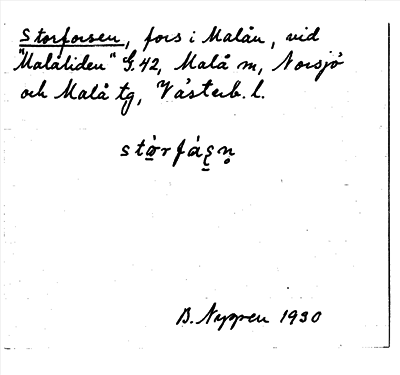 Storforsen, fors i Malån, vid
"Malåliden" G.42, Malå m, Norsjö
och Malå tg, Västerb. l.
B. Nyppen 1930